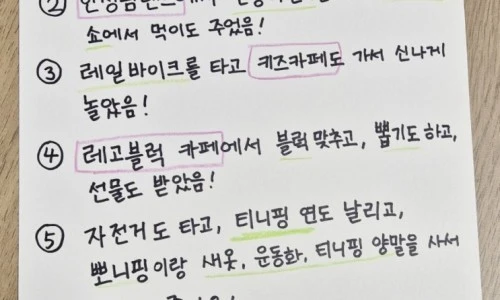 ②
쇼에서 먹이도 주었음!
③ 레일바이크를 타고 키즈카페도 가서 신나게
놀았음!
④ 레고블럭 카페에서 블럭 맞추고, 뽑기도 하고,
선물도 받았음!
⑤ 자전거도 타고, 티니핑 연도 날리고,
뽀니핑이랑 새옷, 운동화, 티니핑 양말을 사서